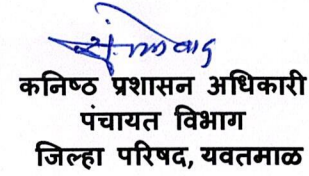 कनिष्ठ प्रशासन अधिकारी
पंचायत विभाग
जिल्हा परिषद, यवतमाळ